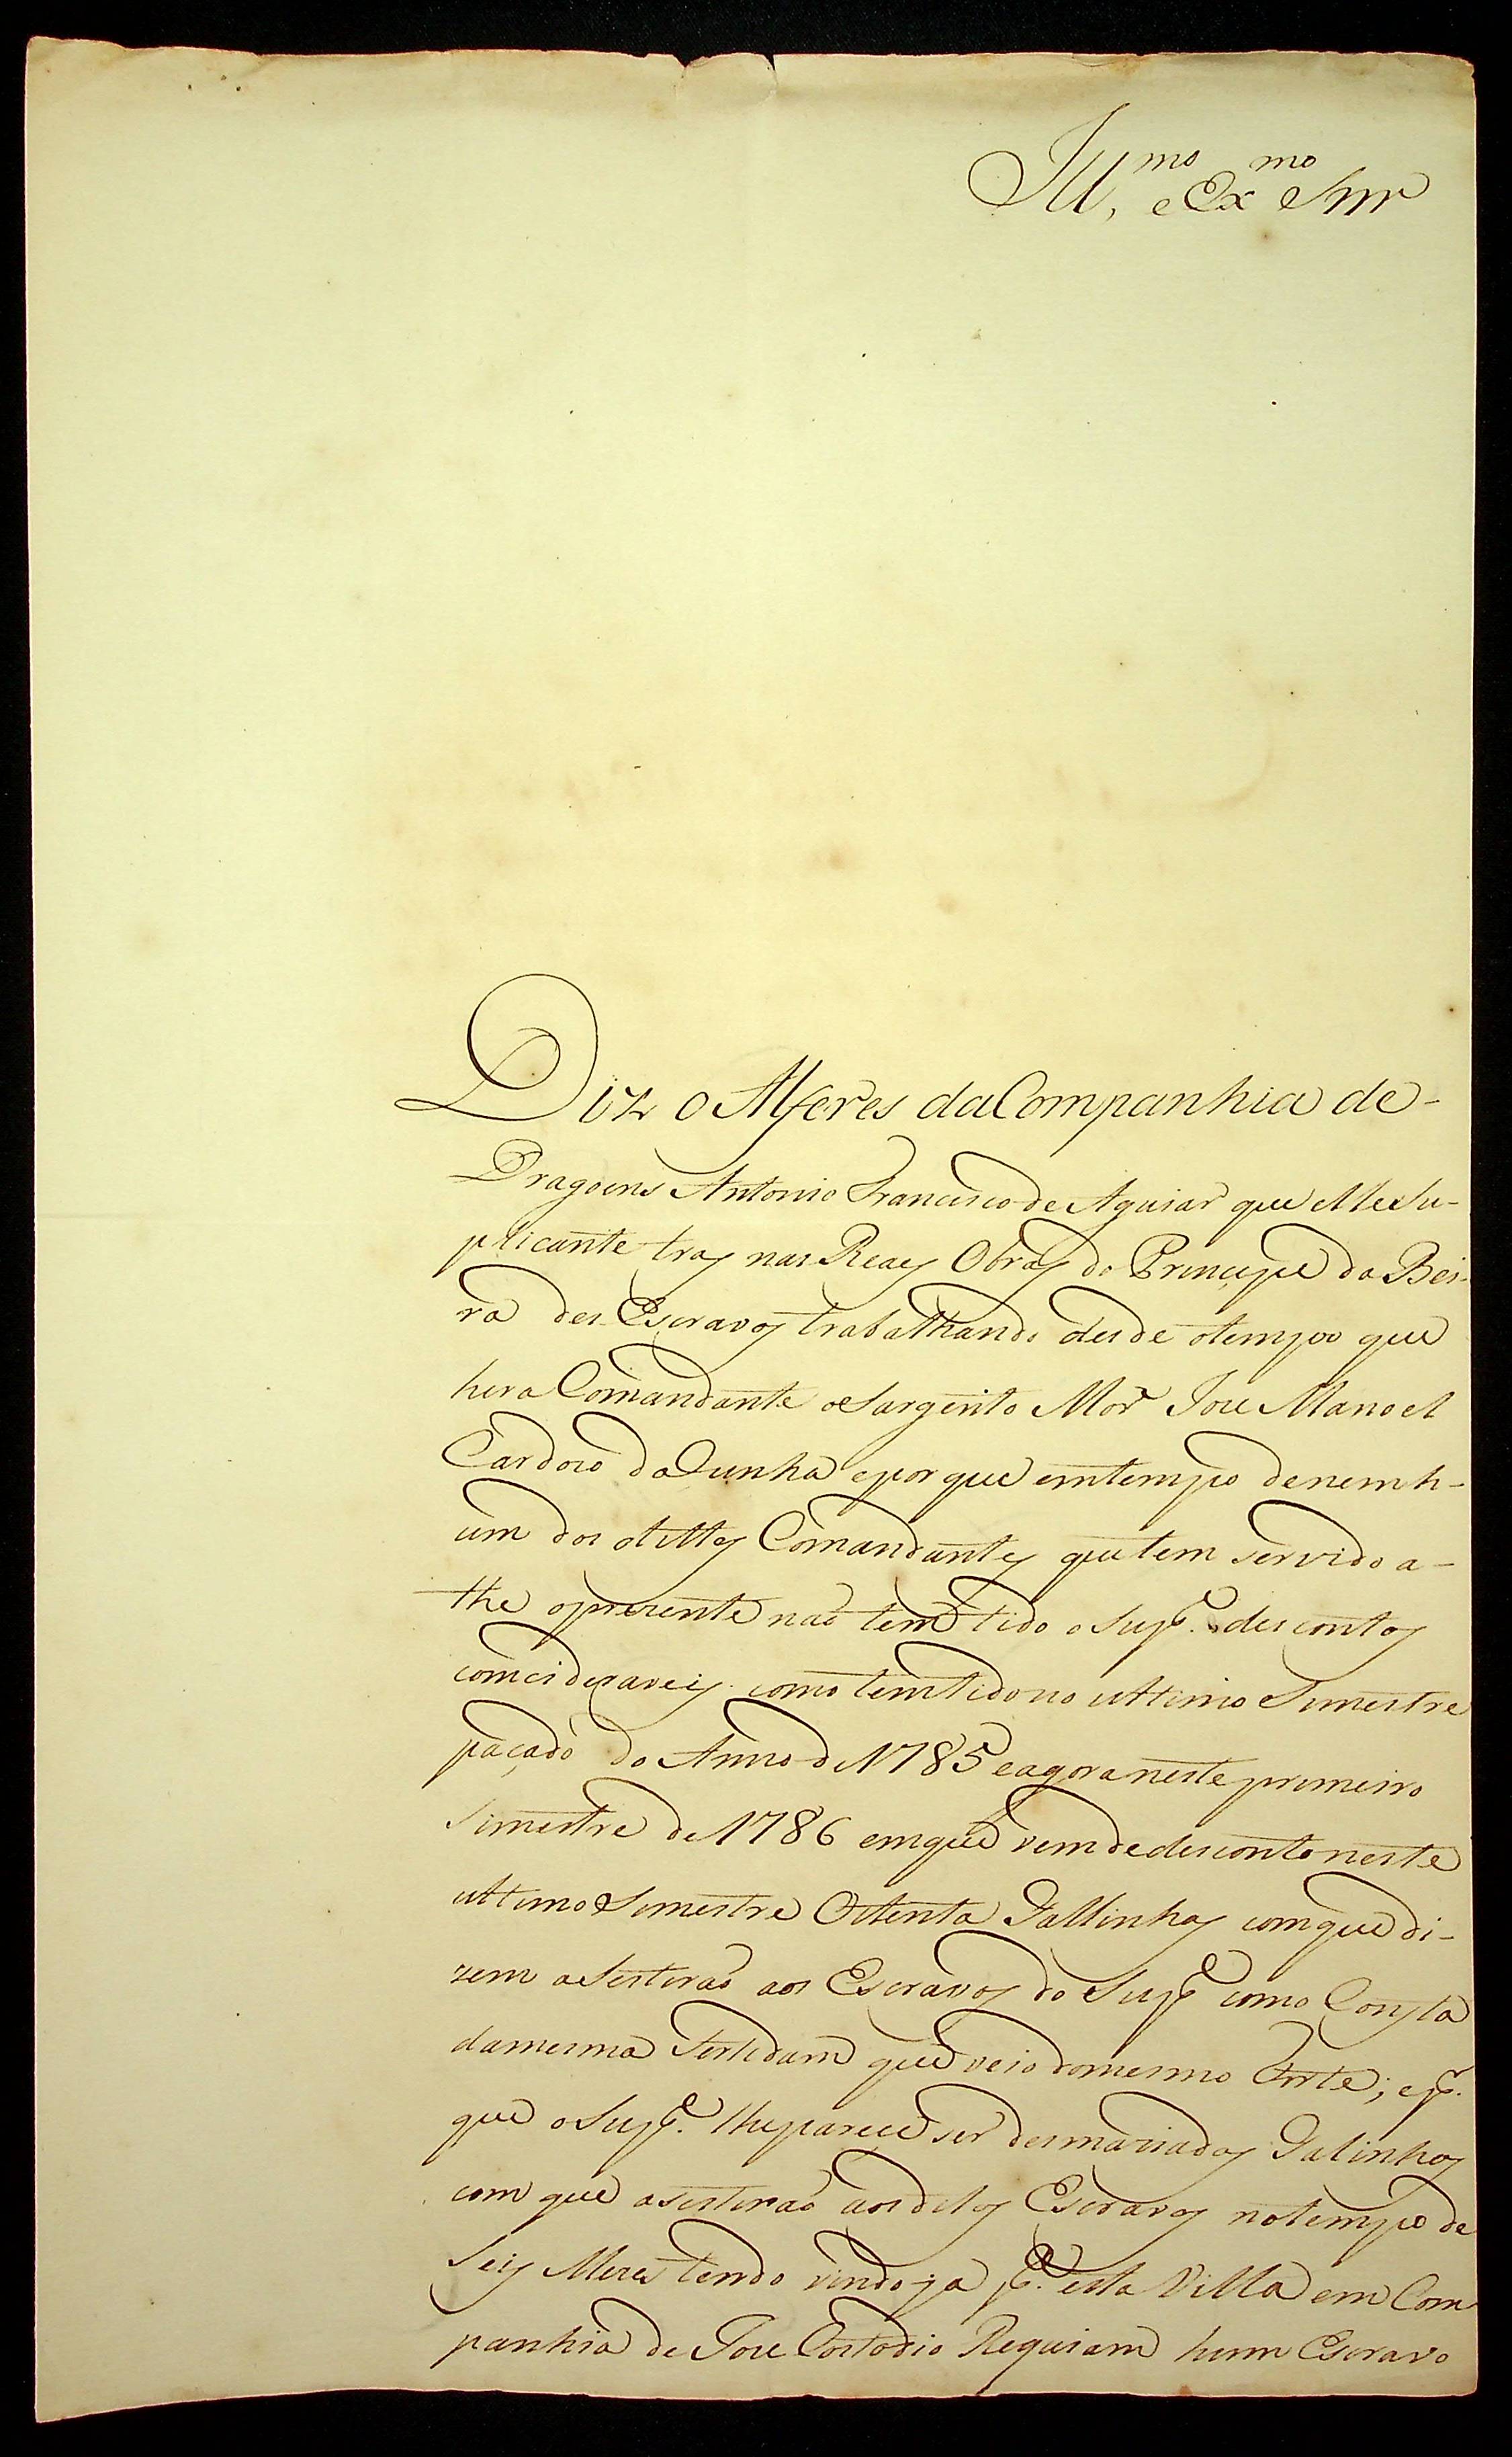 Ill.mo e Ex.mo Snr
Diz o Alferes da Companhia de-
Dragoens Antonio Francisco de Aguiar que elle Su-
plicante tras nas Reaes Obras do Principe da Bei-
ra des Escravos trabalhando desde o tempo que
hera Comandante o Sargento Mor Joze Manoel
Cardozo da Cunha e por que em tempo de nemh-
um dos Comandantes que tem servido a-
the o prezente não tem tido o Sup.e descontos
comcideraveis como tem tido no ultimo Simestre
paçado do Anno de 1785 e agora neste primeiro
Simestre de 1786 em que vem de desconto neste
ultimo Simestre Oitenta Gallinhas com que di-
zem asestirão aos Escravos do Sup.e como Consta
da mesma Sertidam que veio do mesmo Forte; e p.r
que o Sup.e lhe parece ser desmaziadas Galinhas
com que asestirão aos ditos Escravos no tempo de
Seis Mezes tendo vindo ja p.a esta Villa em Com
panhia de Joze Costodio Requiam hum Escravo